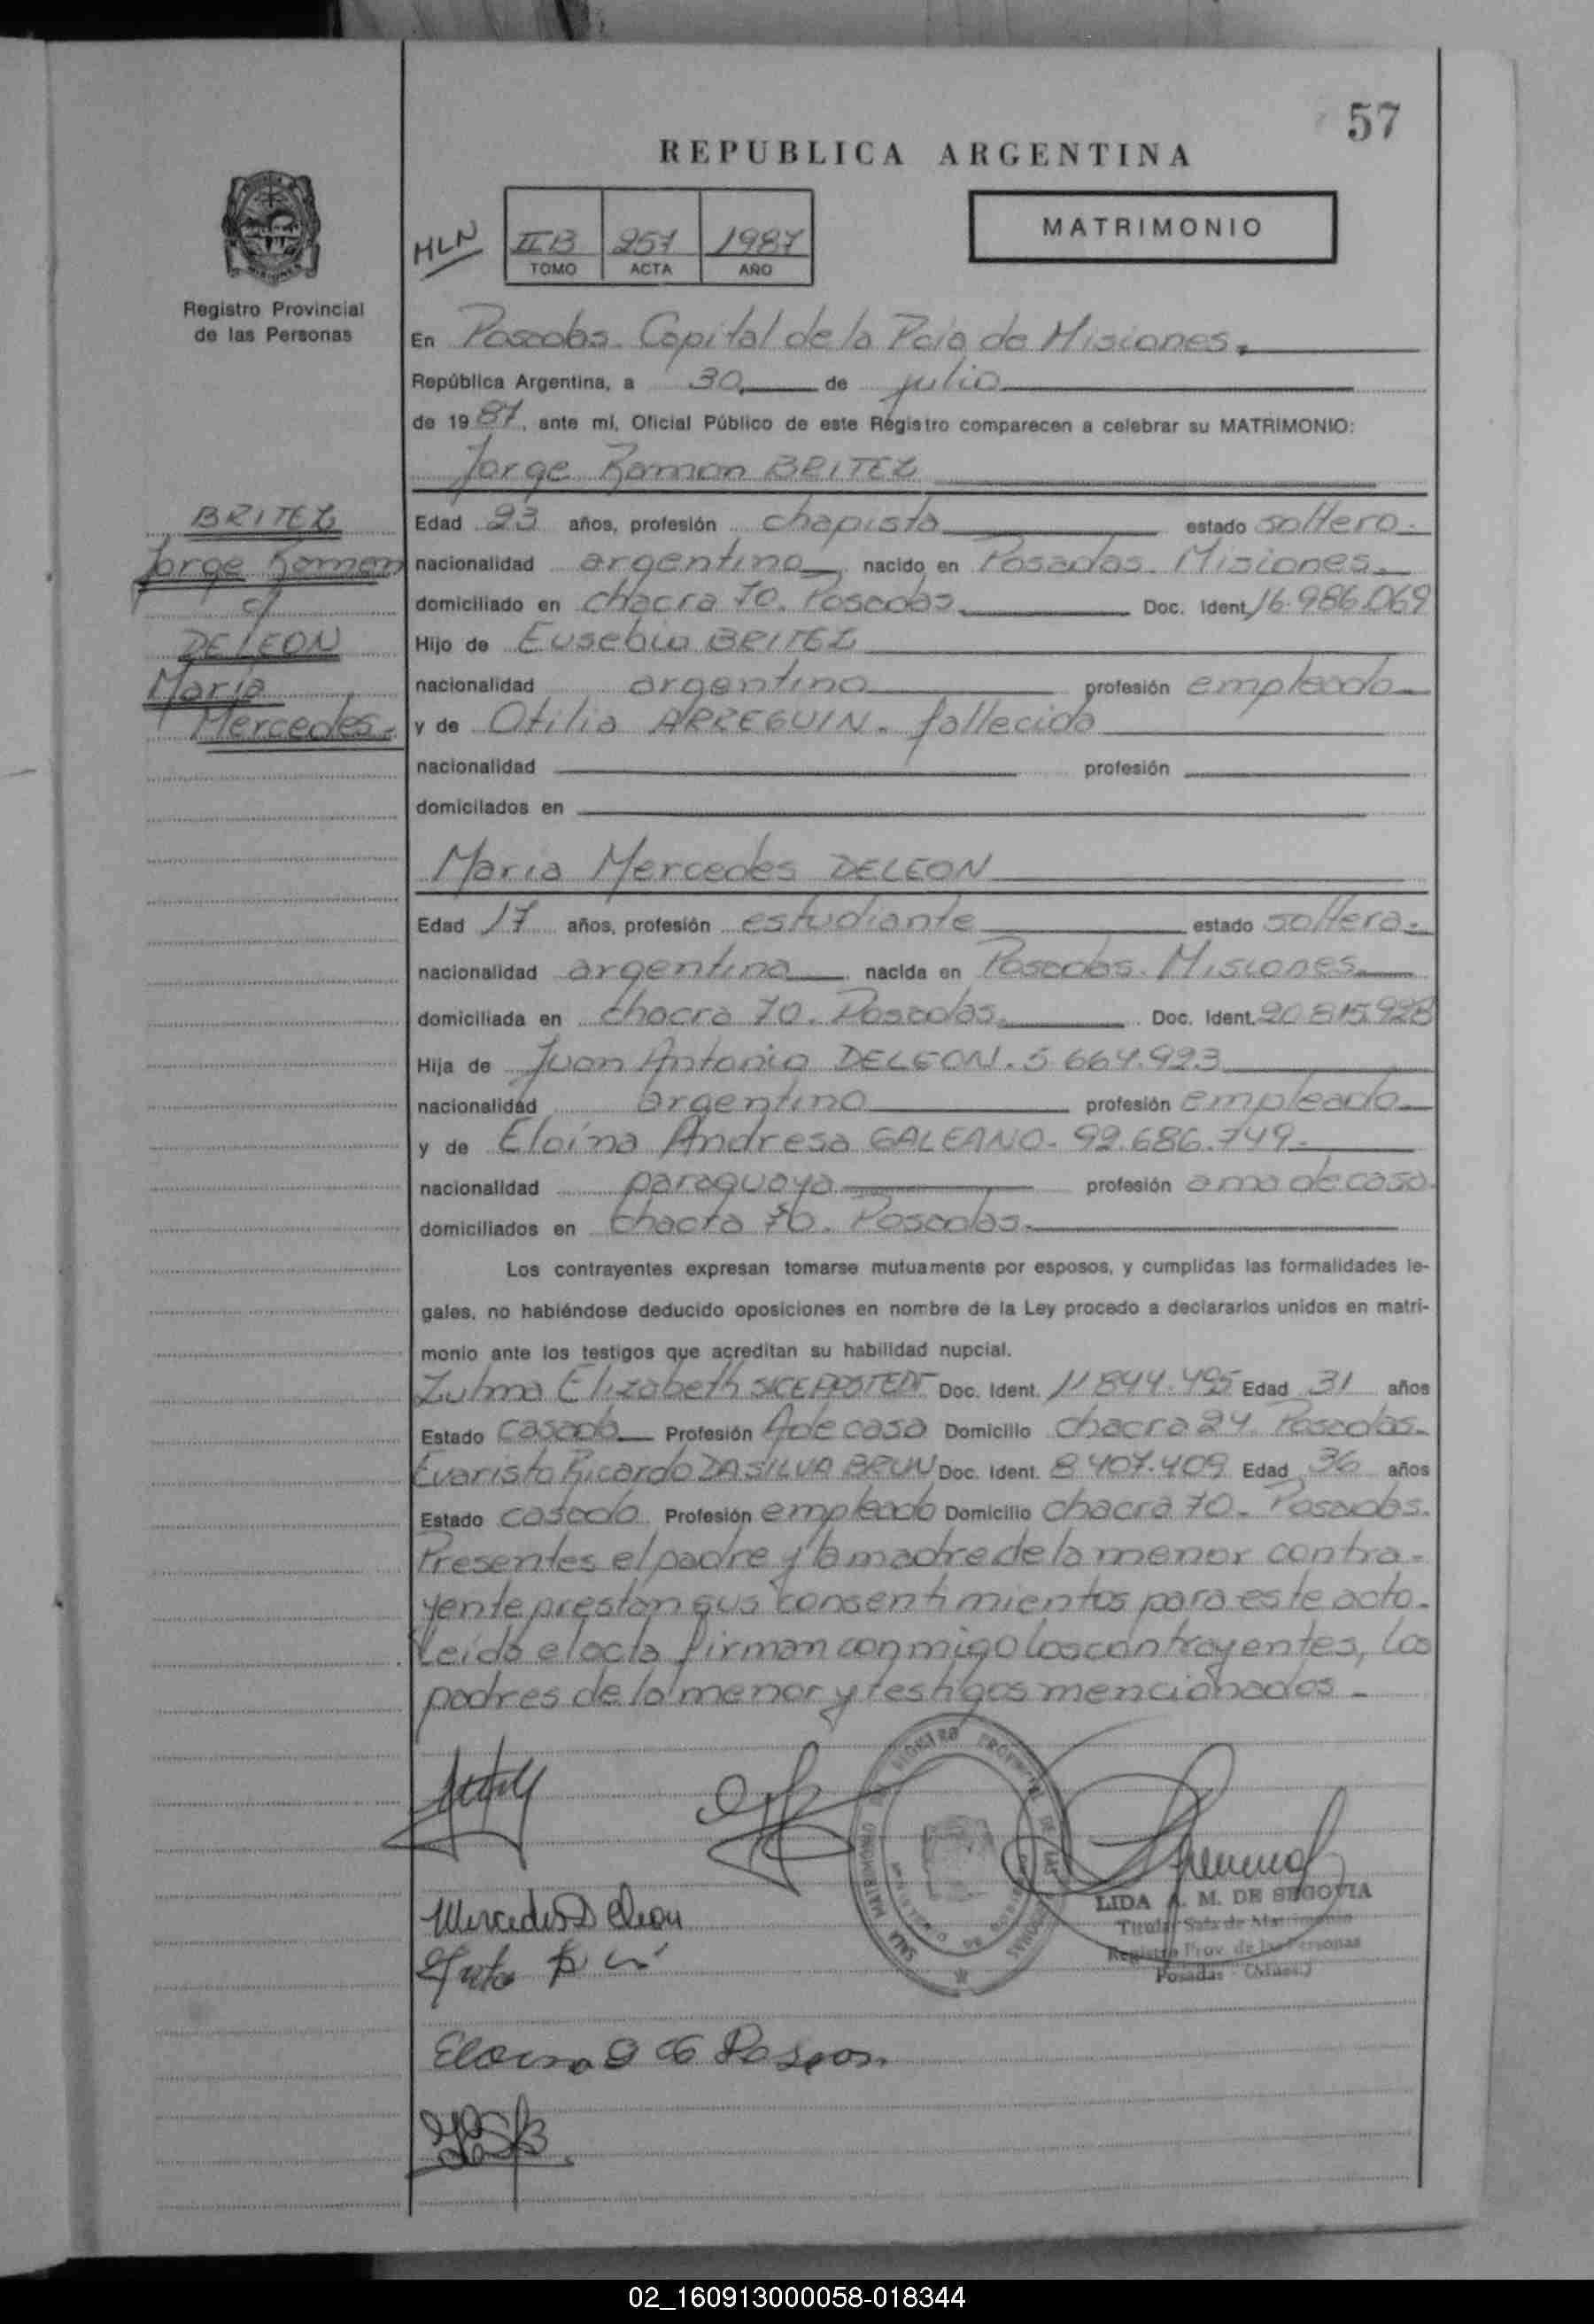 57
REPUBLICA ARGENTINA
MATRIMONIO
HLN
IIB 257 1987
TOMO ACTA AÑO
Registro Provincial
de las Personas
En Posadas. Capital de la Pcia de Misiones.
República Argentina, a 30 de julio
de 1987, ante mí, Oficial Público de este Registro comparecen a celebrar su MATRIMONIO:
Jorge Ramon BRITEZ
BRITEZ
Jorge Ramon
c/
DELEON
Maria
Mercedes.-
Edad 23 años, profesión chapista estado soltero.
nacionalidad argentino nacido en Posadas. Misiones.
domiciliado en chacra 70. Posadas. Doc. Ident. 16.986.069
Hijo de Eusebio BRITEZ
nacionalidad argentino profesión empleado
y de Otilia ARREGUIN. fallecida
nacionalidad profesión
domicilados en
Maria Mercedes DELEON
Edad 17 años, profesión estudiante estado soltera.
nacionalidad argentina nacida en Posadas. Misiones
domiciliada en chacra 70. Posadas. Doc. Ident. 20.815.928
Hija de Juan Antonio DELEON. 5.664.923
nacionalidad argentino profesión empleado
y de Eloína Andresa GALEANO- 92.686.749.
nacionalidad paraguaya profesión ama de casa.
domiciliados en chacra 70. Posadas.
Los contrayentes expresan tomarse mutuamente por esposos, y cumplidas las formalidades le-
gales, no habiéndose deducido oposiciones en nombre de la Ley procedo a declararlos unidos en matri-
monio ante los testigos que acreditan su habilidad nupcial.
Zulma Elizabeth Doc. Ident. 11.844.495 Edad 31 años
Estado casada Profesión A de casa Domicilio chacra 24. Posadas.
Evaristo Ricardo DA SILVA BRUN Doc. Ident. 8.407.409 Edad 36 años
Estado casado Profesión empleado Domicilio chacra 70. Posadas.
Presentes el padre y la madre de la menor contra-
yente prestan sus consentimientos para este acto.
Leída el acta firman conmigo los contrayentes, los
padres de la menor y testigos mencionados.
REGISTRO PROVINCIAL DE LAS PERSONAS
SALA MATRIMONIO
Mercedes Deleon
LIDA A. M. DE SEGOVIA
Titular Sala de Matrimonio
Registro Prov. de las Personas
Posadas (Mnes.)
Eloina G de
02_160913000058-018344